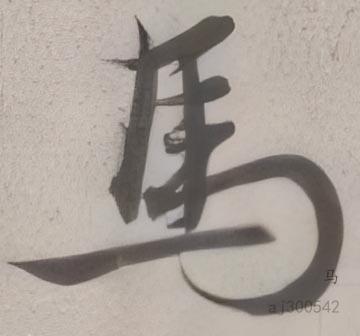 馬
马
aj300542